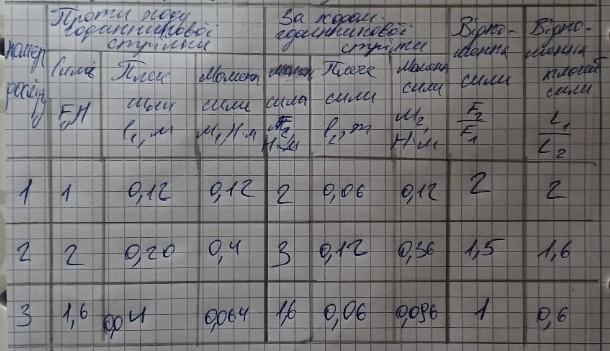 Проти ходу За ходом Відно- Відно-
годинникової годинникової шення шення
стрілки стрілки сили плечей
номер Сила Плече Момент сила Плече Момент сили
досліду сили сили сили сили
F, Н l₁, м M, Н·м F₂ l₂, м M₂ F₂/F₁ L₁/L₂
Н·м Н·м
1 1 0,12 0,12 2 0,06 0,12 2 2
2 2 0,20 0,4 3 0,12 0,36 1,5 1,6
3 1,6 0,04 0,064 1,6 0,06 0,096 1 0,6